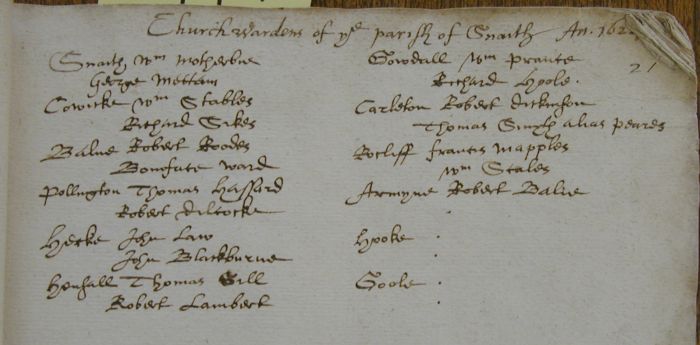 Churchwardens of ye parish of Snaith An. 162
21
Snaith Wm Motherbue
George Mettam
Cowicke Wm Stables
Richard Sikes
Balne Robert Roodes
Bonifate Ward
Pollington Thomas Hassard
Robert Dilcocke
Hecke John Law
John Blackburne
Hensall Thomas Gill
Robert Lambert
Gowdall Wm
Richard Hoole.
Carleton Robert Dickinson
Thomas Smyth alias Peares
Rocliff francis Mapples
Wm Stales
Armyne Robert Balne
Hooke
Goole